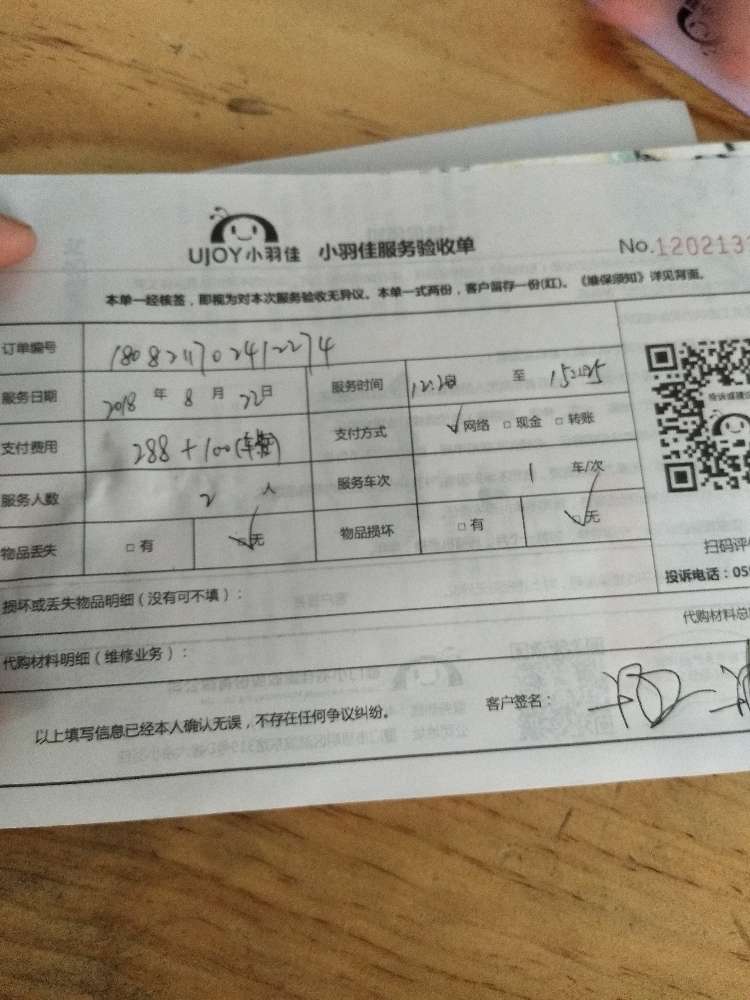 UJOY小羽佳 小羽佳服务验收单 No.120213
本单一经核签，即视为对本次服务验收无异议。本单一式两份，客户留存一份(红)。《维保须知》详见背面。
订单编号 180824702412274
服务日期 2018 年 8 月 22日 服务时间 12:20 至 15:25
投诉或建议
支付费用 288+100 支付方式 ✓网络 □现金 □转账
服务人数 2 人 服务车次 1 车/次
物品丢失 □有 ✓无 物品损坏 □有 ✓无
扫码评
投诉电话：05
损坏或丢失物品明细（没有可不填）：
代购材料明细（维修业务）： 代购材料总
以上填写信息已经本人确认无误，不存在任何争议纠纷。 客户签名：